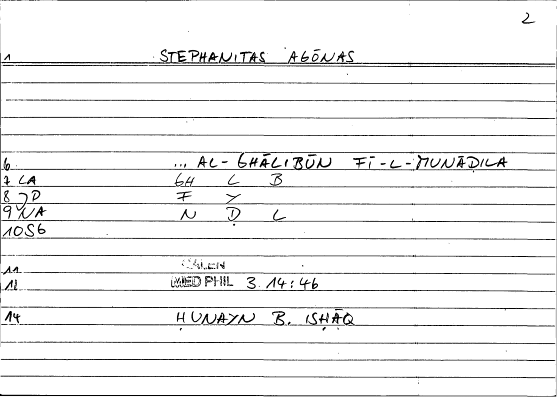 2
1 STEPHANITAS AGŌNAS
6 ... AL-GHĀLIBŪN FĪ-L-MUNĀḌILA
7 LA GH L B
8 JD F Y
9 NA N Ḍ L
10 SG
11 GALEN
12 MED PHIL 3 14:46
14 ḤUNAYN B. ISḤĀQ